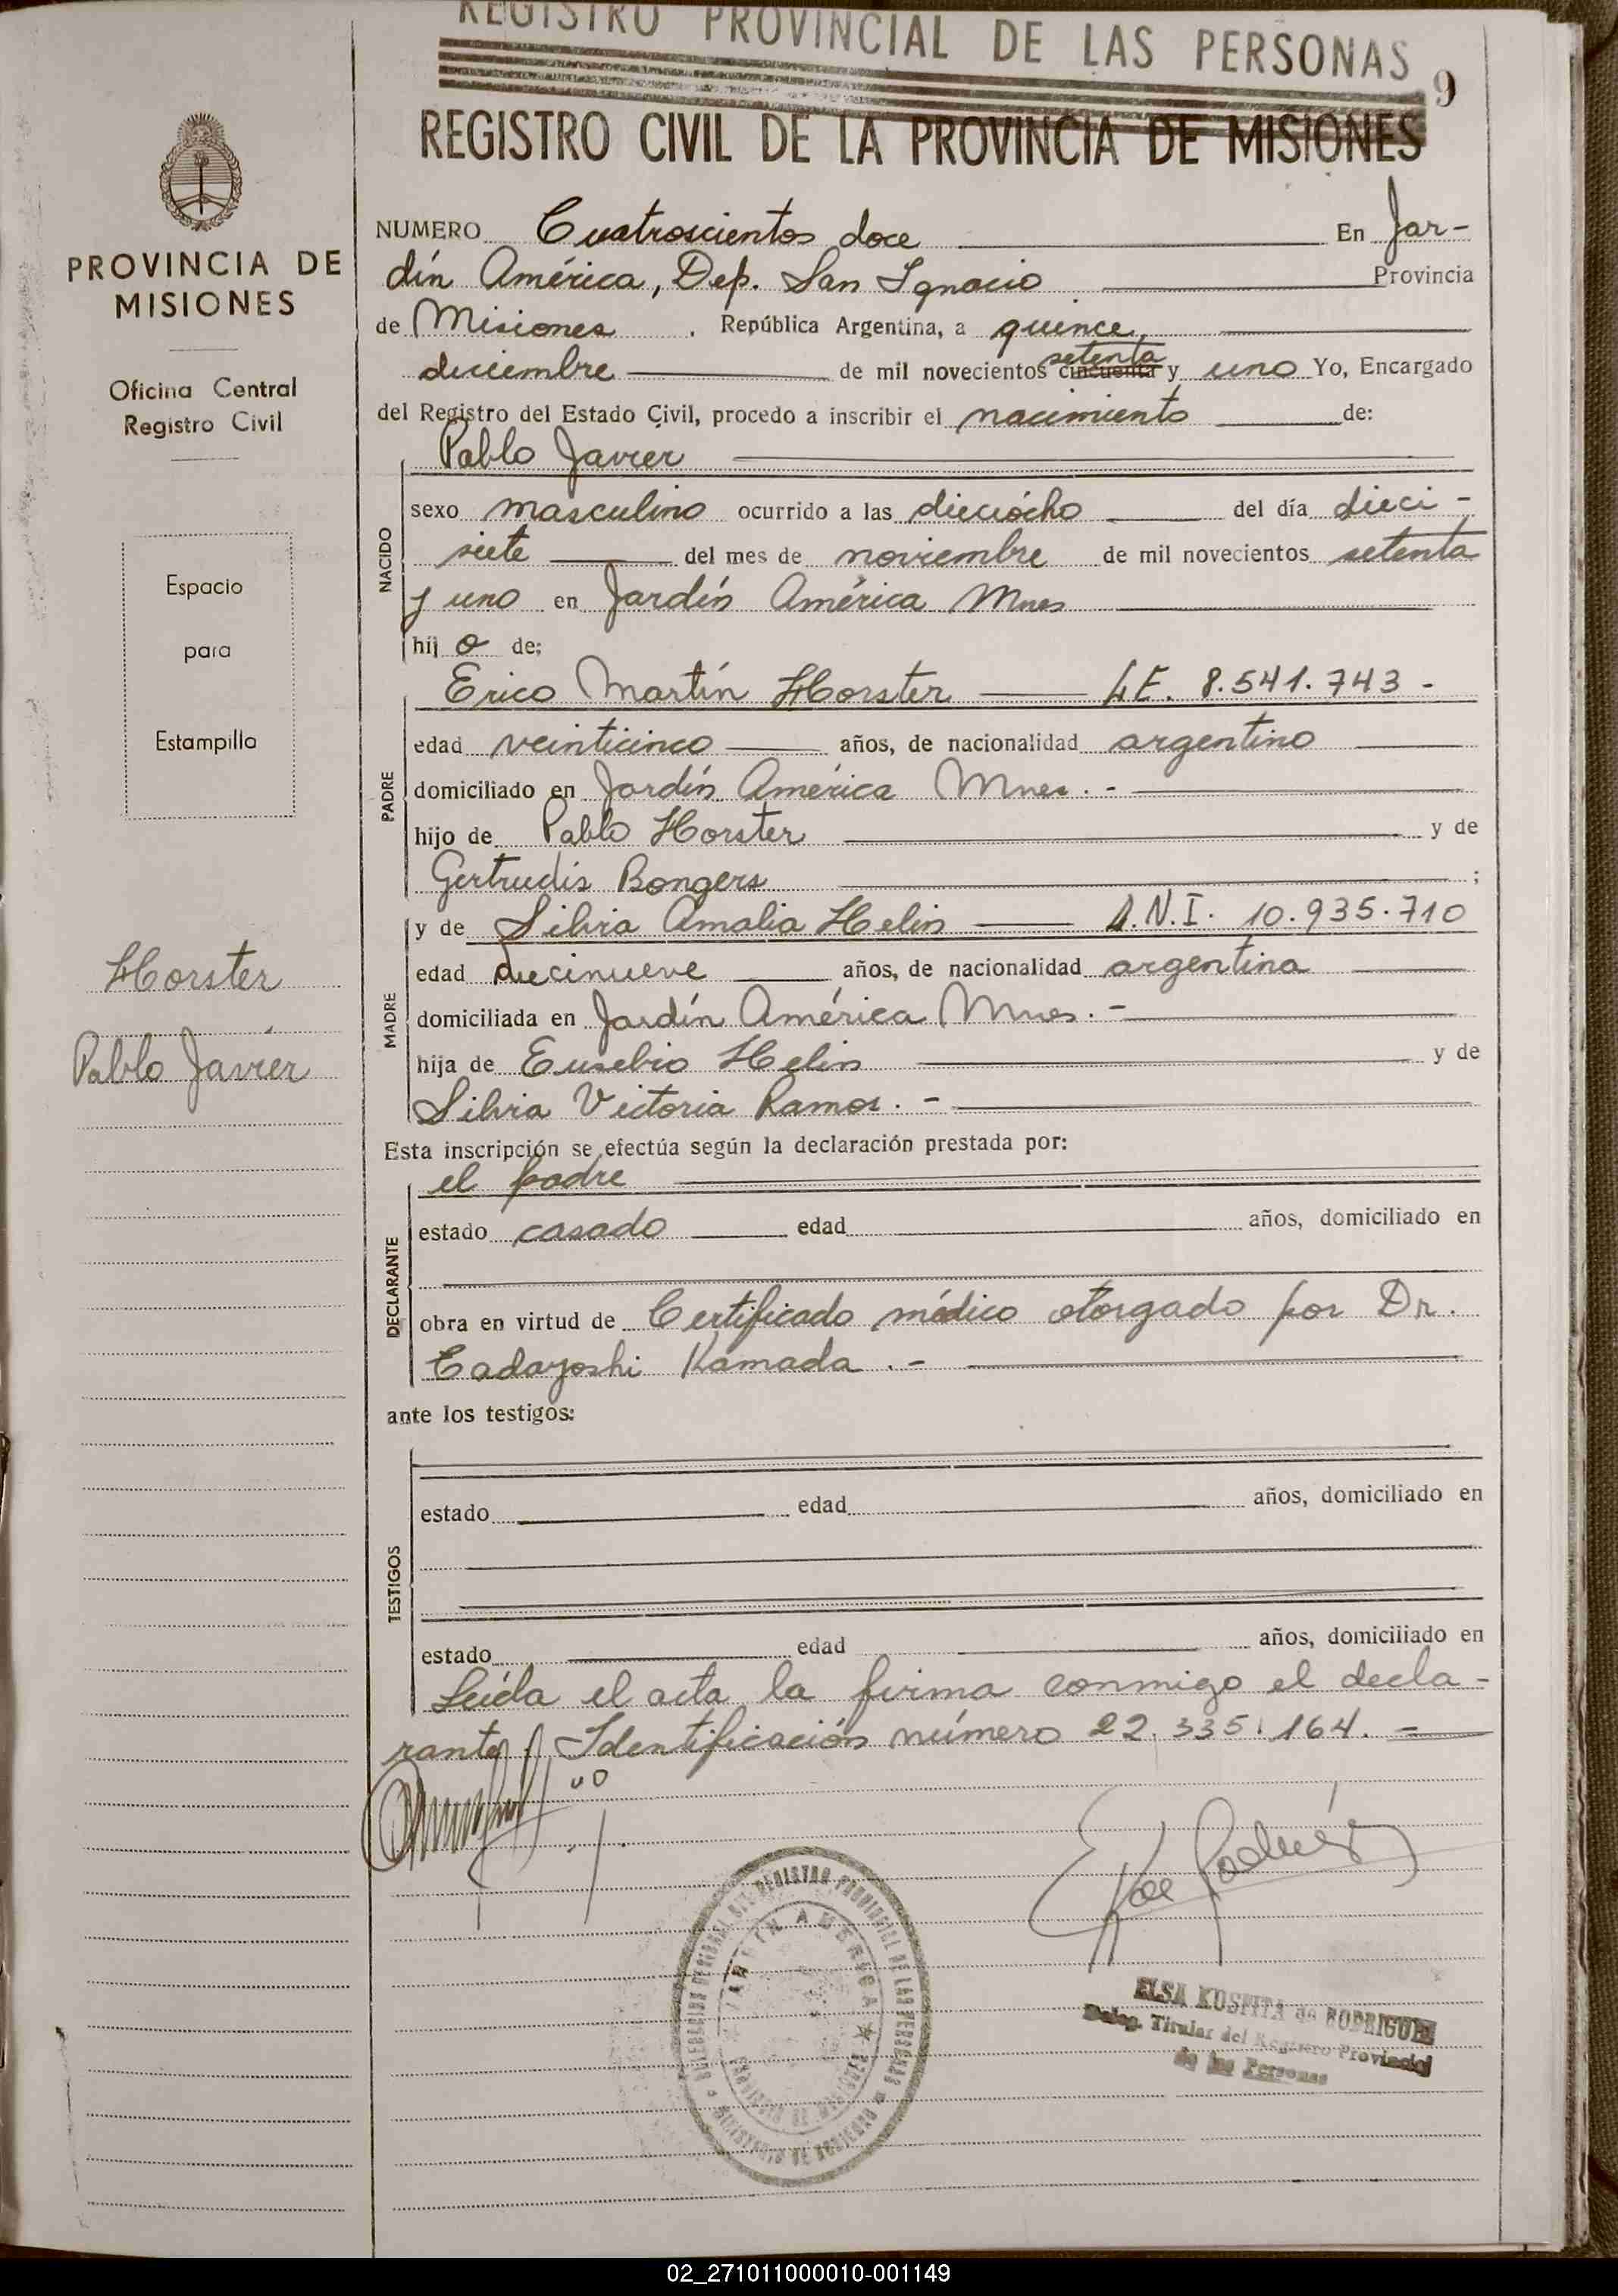 REGISTRO PROVINCIAL DE LAS PERSONAS
9
REGISTRO CIVIL DE LA PROVINCIA DE MISIONES
PROVINCIA DE
MISIONES
Oficina Central
Registro Civil
Espacio
para
Estampilla
Horster
Pablo Javier
NUMERO Cuatroscientos doce En Jar-
dín América, Dep. San Ignacio Provincia
de Misiones. República Argentina, a quince
diciembre de mil novecientos cincuenta setenta y uno Yo, Encargado
del Registro del Estado Civil, procedo a inscribir el nacimiento de:
Pablo Javier
NACIDO
sexo masculino ocurrido a las dieciócho del día dieci-
siete del mes de noviembre de mil novecientos setenta
y uno en Jardín América Mnes
hij o de:
PADRE
Erico Martín Horster L.E. 8.541.743 -
edad veinticinco años, de nacionalidad argentino
domiciliado en Jardín América Mnes. -
hijo de Pablo Horster y de
Gertrudis Bongers ;
MADRE
y de Silvia Amalia Helin D.N.I. 10.935.710
edad diecinueve años, de nacionalidad argentina
domiciliada en Jardín América Mnes. -
hija de Eusebio Helin y de
Silvia Victoria Ramos. -
Esta inscripción se efectúa según la declaración prestada por:
DECLARANTE
el padre
estado casado edad años, domiciliado en
obra en virtud de Certificado médico otorgado por Dr.
Tadayoshi Kamada. -
ante los testigos:
TESTIGOS
estado edad años, domiciliado en
estado edad años, domiciliado en
Leída el acta la firma conmigo el decla-
rante. Identificación número 22.335.164. -
JARDIN AMERICA
ELSA KOSPITA de RODRIGUEZ
Deleg. Titular del Registro Provincial
de las Personas
02_271011000010-001149